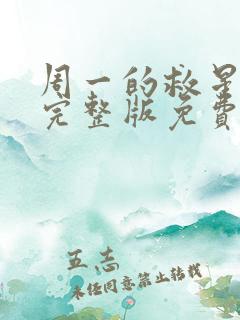 周一的救星
完整版免费
五志
未经同意禁止转载